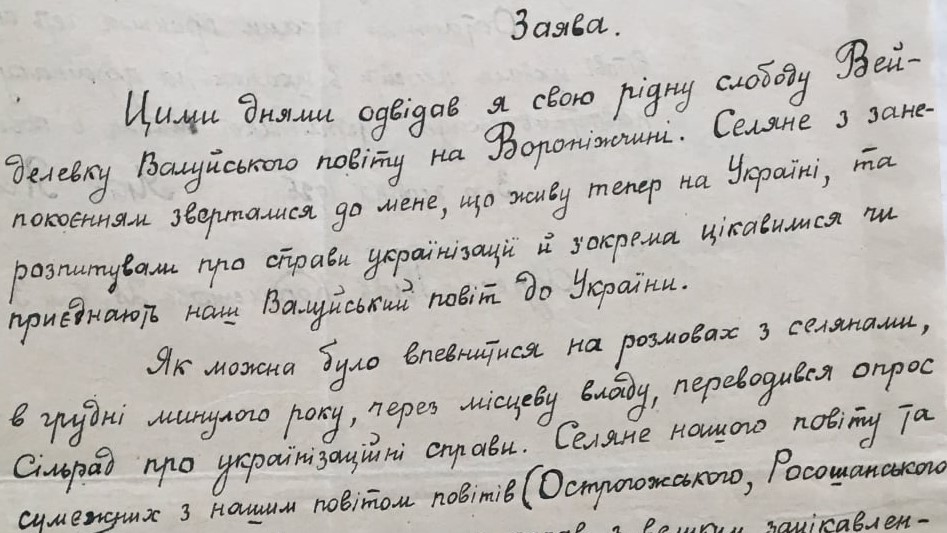 Заява.
Цими днями одвідав я свою рідну слободу Вей-
делевку Валуйського повіту на Вороніжчині. Селяне з зане-
покоєнням зверталися до мене, що живу тепер на Україні, та
розпитували про справи українізації й зокрема цікавилися чи
приєднають наш Валуйський повіт до України.
Як можна було впевнитися на розмовах з селянами,
в грудні минулого року, через місцеву владу, переводився опрос
Сільрад про українізаційні справи. Селяне нашого повіту та
сумежних з нашим повітом повітів (Острогожського, Росошанського
з великим зацікавлен-